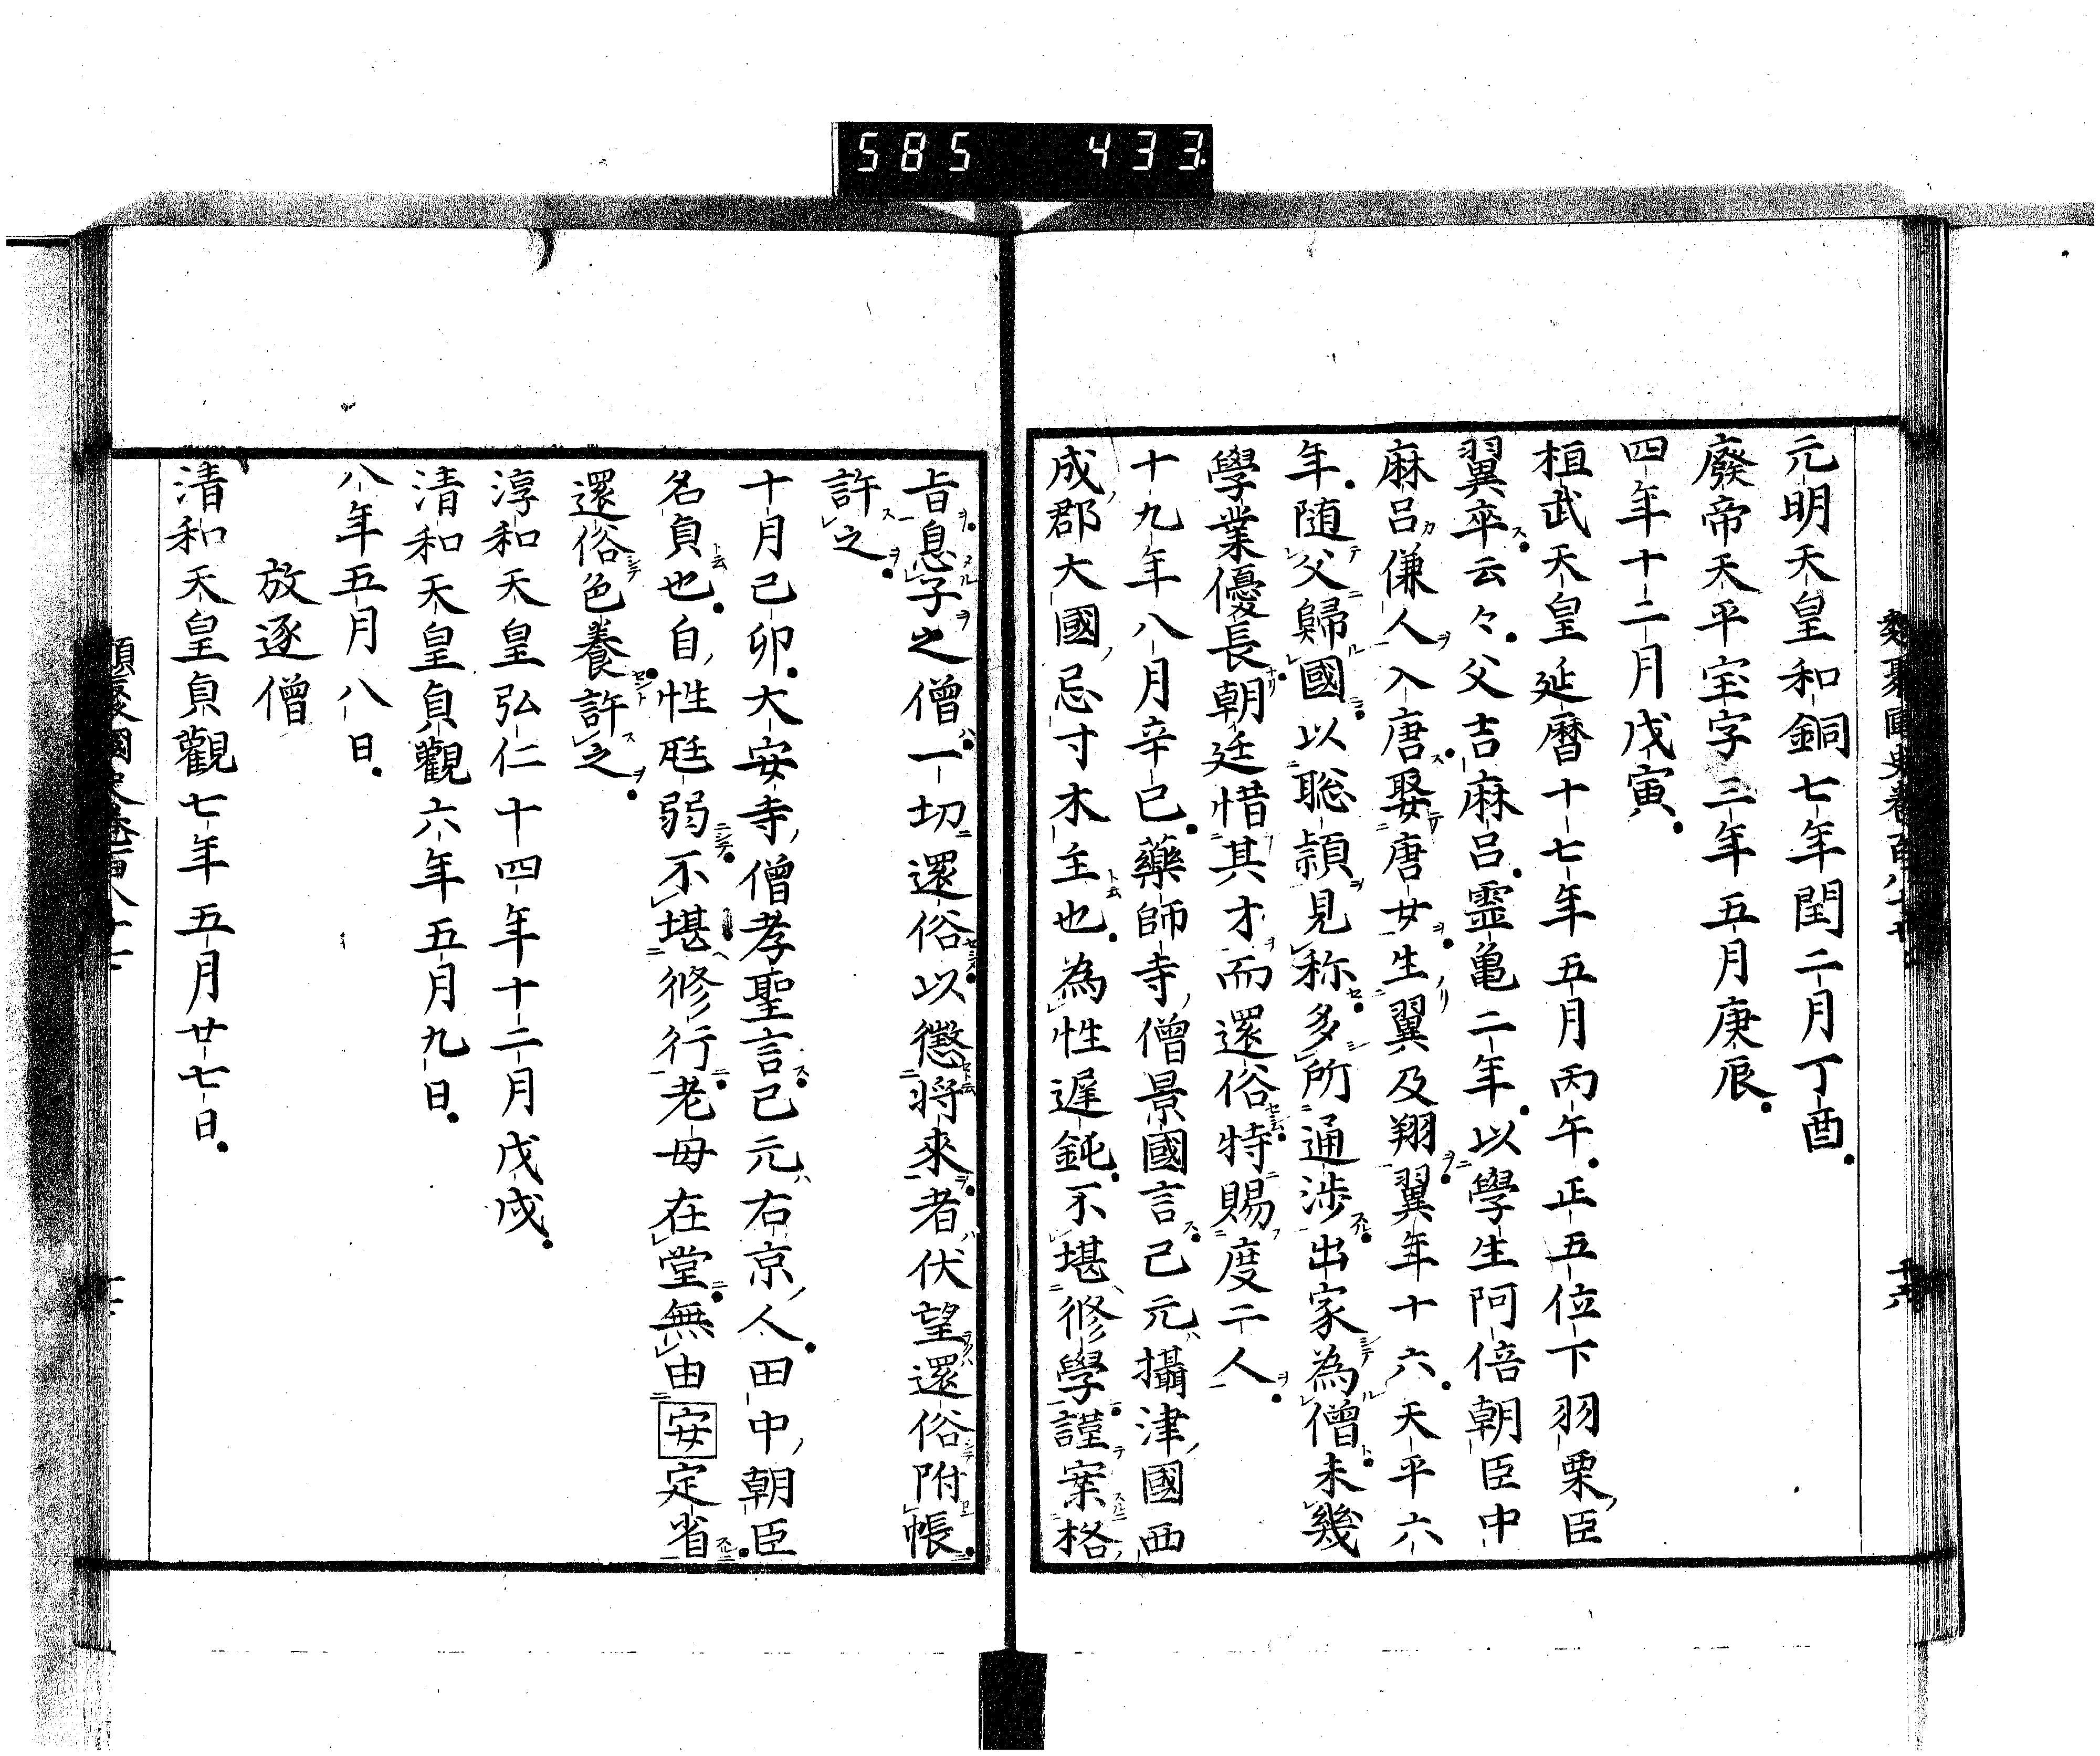 585 433
元明天皇和銅七年閏二月丁酉
廢帝天平宝字二年五月庚辰
四年十二月戊寅
桓武天皇延暦十七年五月丙午正五位下羽栗臣
翼卒云々父吉麻呂靈亀二年以學生阿倍朝臣中
麻呂傔人入唐娶唐女生翼及翔翼年十六天平六
年随父歸國以聡頴見称多所通渉出家為僧未幾
學業優長朝廷惜其才而還俗特賜度二人
十九年八月辛巳藥師寺僧景國言己元攝津國西
成郡大國忌寸木主也為性遅鈍不堪修學謹案格
旨息子之僧一切還俗以懲将來者伏望還俗附帳
許之
十月己卯大安寺僧孝聖言己元右京人田中朝臣
名貞也自性尫弱不堪修行老母在堂無由安定省
還俗色養許之
淳和天皇弘仁十四年十二月戊戌
清和天皇貞觀六年五月九日
八年五月八日
放逐僧
清和天皇貞觀七年五月廿七日